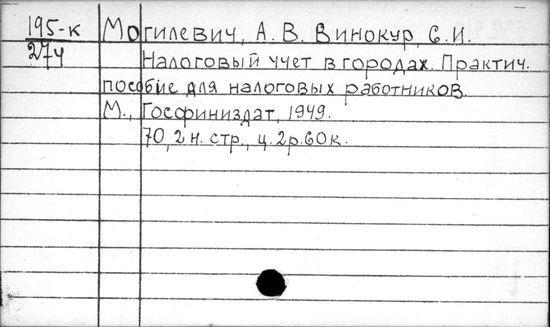 195-к Могилевич, А. В. Винокур, С. И.
274 Налоговый учет в городах. Практич.
пособие для налоговых работников.
М., Госфиниздат, 1949.
70, 2 н. стр., ц. 2 р. 60 к.